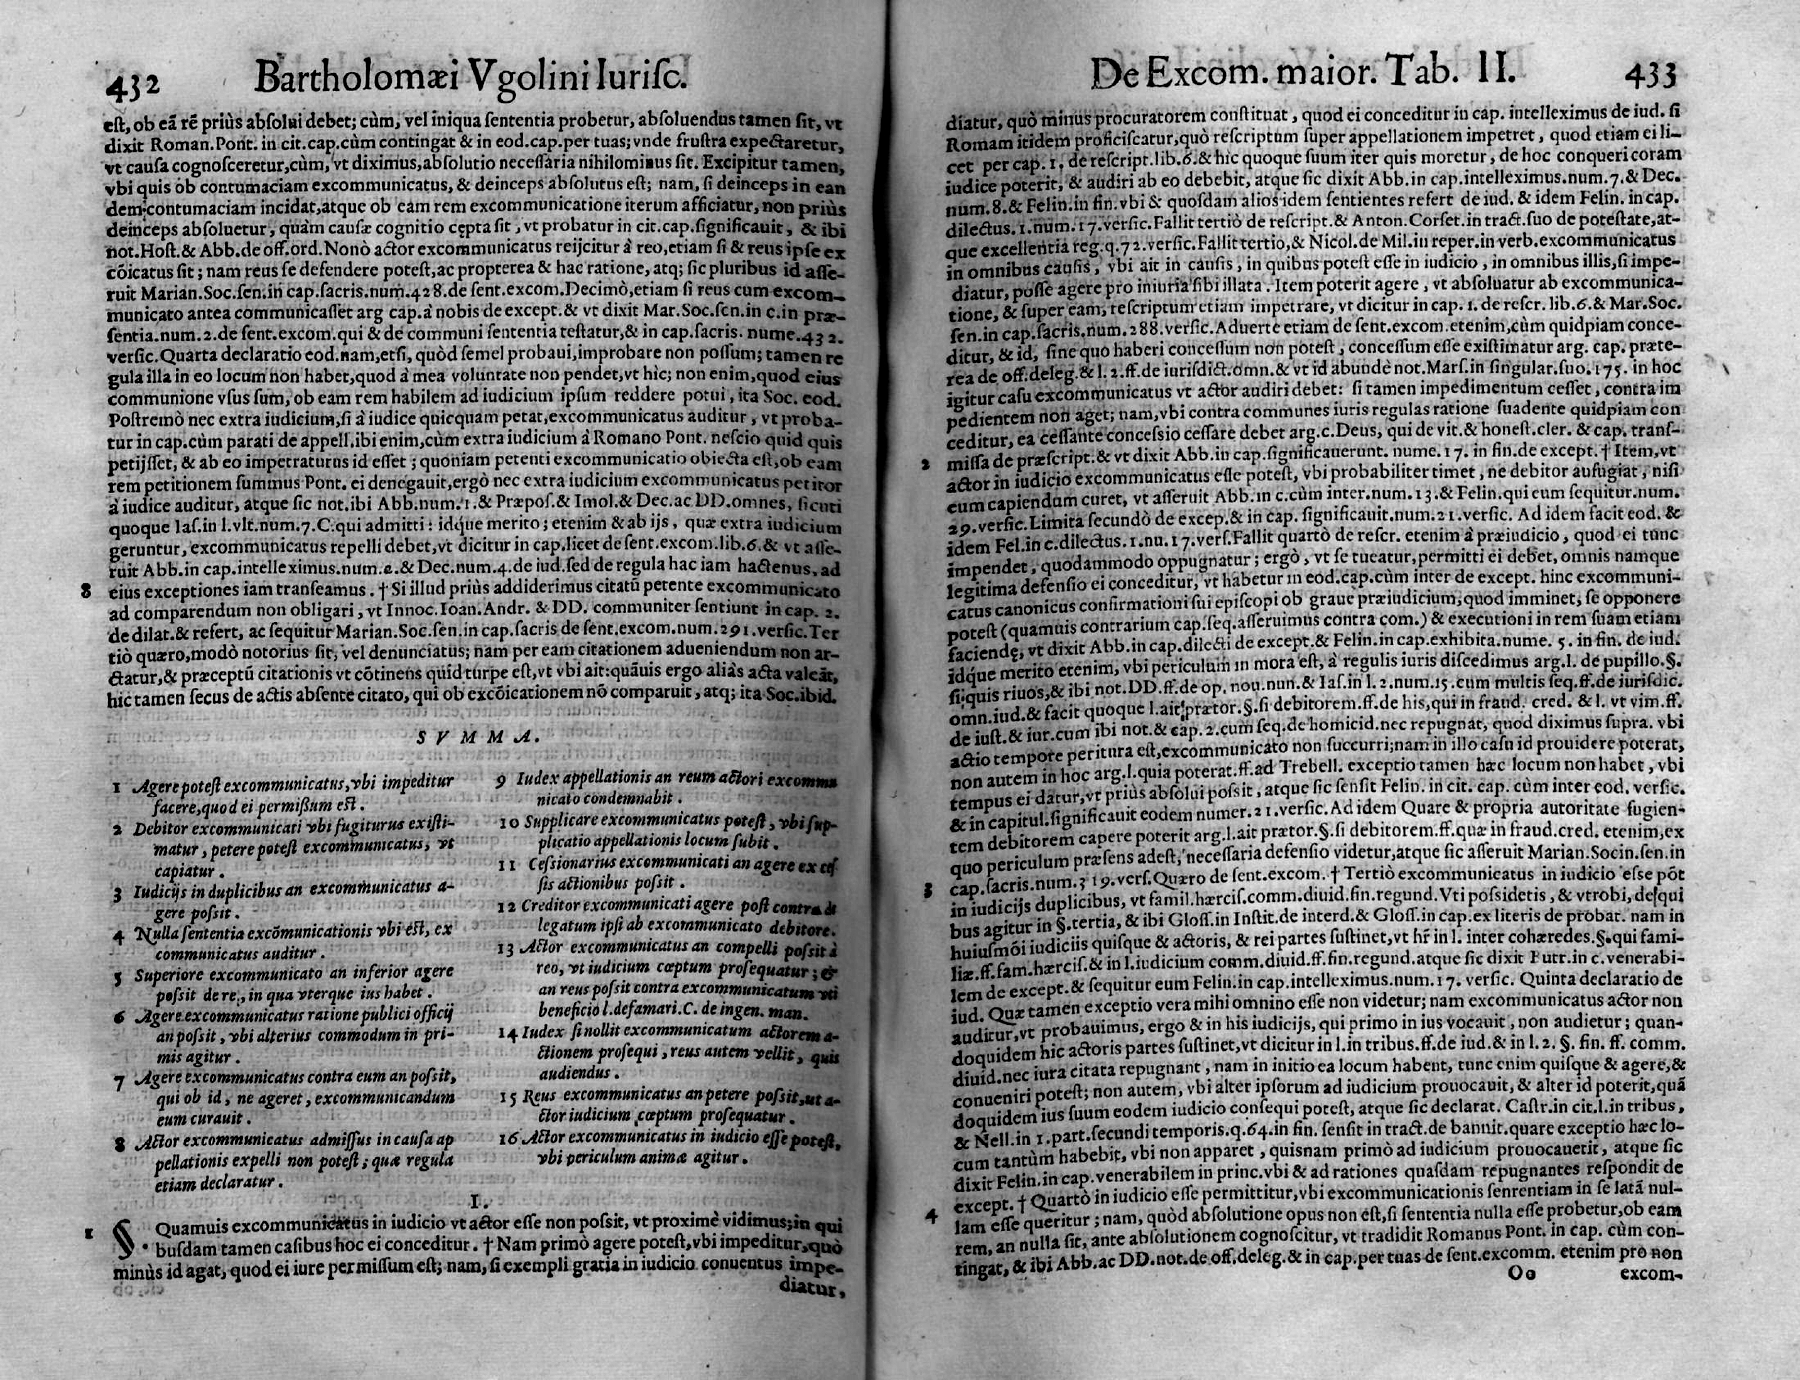 432 Bartholomæi Vgolini Iuriſc.
eſt, ob eã rẽ priùs abſolui debet; cùm, vel iniqua ſententia probetur, abſoluendus tamen ſit, vt
dixit Roman.Pont. in cit.cap.cùm contingat & in eod.cap.per tuas; vnde fruſtra expectaretur,
vt cauſa cognoſceretur,cùm, vt diximus,abſolutio neceſſaria nihilominus ſit. Excipitur tamen,
vbi quis ob contumaciam excommunicatus, & deinceps abſolutus eſt; nam, ſi deinceps in ean
dem contumaciam incidat,atque ob eam rem excommunicatione iterum afficiatur, non priùs
deinceps abſoluetur, quàm cauſæ cognitio cępta ſit , vt probatur in cit.cap.ſignificauit, & ibi
not.Hoſt.& Abb.de off.ord.Nonò actor excommunicatus reijcitur à reo,etiam ſi & reus ipſe ex
cõicatus ſit ; nam reus ſe defendere poteſt,ac propterea & hac ratione, atq; ſic pluribus id aſſe-
ruit Marian.Soc.ſen.in cap.ſacris.num.428.de ſent.excom.Decimò,etiam ſi reus cum excom-
municato antea communicaſſet arg cap.à nobis de except.& vt dixit Mar.Soc.ſen.in c.in præ-
ſentia.num.2.de ſent.excom.qui & de communi ſententia teſtatur,& in cap.ſacris. nume.432.
verſic.Quarta declaratio eod.nam,etſi, quòd ſemel probaui,improbare non poſſum; tamen re
gula illa in eo locum non habet,quod à mea voluntate non pendet,vt hic; non enim,quod eius
communione vſus ſum, ob eam rem habilem ad iudicium ipſum reddere potui , ita Soc. eod.
Poſtremò nec extra iudicium,ſi à iudice quicquam petat,excommunicatus auditur , vt proba-
tur in cap.cùm parati de appell.ibi enim,cùm extra iudicium à Romano Pont. neſcio quid quis
petijſſet, & ab eo impetraturus id eſſet ; quoniam petenti excommunicatio obiecta eſt,ob eam
rem petitionem ſummus Pont. ei denegauit,ergò nec extra iudicium excommunicatus petitor
à iudice auditur, atque ſic not.ibi Abb.num.1.& Præpoſ.& Imol.& Dec.ac DD.omnes, ſicuti
quoque Iaſ.in l.vlt.num.7.C.qui admitti : idque merito ; etenim & ab ijs , quæ extra iudicium
geruntur, excommunicatus repelli debet,vt dicitur in cap.licet de ſent.excom.lib.6.& vt aſſe-
ruit Abb.in cap.intelleximus.num.2.& Dec.num.4.de iud.ſed de regula hac iam hactenus, ad
8 eius exceptiones iam tranſeamus . † Si illud priùs addiderimus citatũ petente excommunicato
ad comparendum non obligari , vt Innoc.Ioan.Andr. & DD. communiter ſentiunt in cap. 2.
de dilat.& refert, ac ſequitur Marian.Soc.ſen.in cap.ſacris de ſent.excom.num.291.verſic.Ter
tiò quæro,modò notorius ſit, vel denunciatus; nam per eam citationem adueniendum non ar-
ctatur,& præceptũ citationis vt cõtinens quid turpe eſt,vt vbi ait:quãuis ergo aliàs acta valeãt,
hic tamen ſecus de actis abſente citato, qui ob excõicationem nõ comparuit, atq; ita Soc.ibid.
SVMMA.
1 Agere poteſt excommunicatus, vbi impeditur
facere,quod ei permißum eſt .
2 Debitor excommunicati vbi fugiturus exiſti-
matur , petere poteſt excommunicatus, vt
capiatur .
3 Iudicijs in duplicibus an excommunicatus a-
gere poſſit .
4 Nulla ſententia excõmunicationis vbi eſt, ex
communicatus auditur .
5 Superiore excommunicato an inferior agere
poſſit de re, in qua vterque ius habet .
6 Agere excommunicatus ratione publici officij
an poſſit , vbi alterius commodum in pri-
mis agitur .
7 Agere excommunicatus contra eum an poſſit,
qui ob id, ne ageret, excommunicandum
eum curauit .
8 Actor excommunicatus admiſſus in cauſa ap
pellationis expelli non poteſt; quæ regula
etiam declaratur .
9 Iudex appellationis an reum actori excommu
nicato condemnabit .
10 Supplicare excommunicatus poteſt , vbi ſup-
plicatio appellationis locum ſubit .
11 Ceſſionarius excommunicati an agere ex ceſ
ſis actionibus poſſit .
12 Creditor excommunicati agere poſt contra de
legatum ipſi ab excommunicato debitore.
13 Actor excommunicatus an compelli poſſit à
reo, vt iudicium cœptum proſequatur ; &
an reus poſſit contra excommunicatum vti
beneficio l.defamari.C. de ingen. man.
14 Iudex ſi nollit excommunicatum actorem a-
ctionem proſequi , reus autem vellit, quis
audiendus .
15 Reus excommunicatus an petere poſſit, ut a-
ctor iudicium cœptum proſequatur .
16 Actor excommunicatus in iudicio eſſe poteſt,
vbi periculum animæ agitur .
I.
1 §. Quamuis excommunicatus in iudicio vt actor eſſe non poſſit, vt proximè vidimus; in qui
buſdam tamen caſibus hoc ei conceditur . † Nam primò agere poteſt,vbi impeditur,quò
minùs id agat, quod ei iure permiſſum eſt; nam, ſi exempli gratia in iudicio conuentus impe-
diatur,
De Excom. maior. Tab. II. 433
diatur, quò minus procuratorem conſtituat , quod ei conceditur in cap. intelleximus de iud. ſi
Romam itidem proficiſcatur,quò reſcriptum ſuper appellationem impetret , quod etiam ei li-
cet per cap. 1. de reſcript.lib.6.& hic quoque ſuum iter quis moretur , de hoc conqueri coram
iudice poterit, & audiri ab eo debebit, atque ſic dixit Abb.in cap.intelleximus.num.7.& Dec.
num.8.& Felin.in fin.vbi & quoſdam alios idem ſentientes refert de iud. & idem Felin. in cap.
dilectus.1.num.17.verſic.Fallit tertiò de reſcript.& Anton.Corſet.in tract.ſuo de poteſtate,at-
que excellentia reg.q.72.verſic.Fallit tertio,& Nicol.de Mil.in reper.in verb.excommunicatus
in omnibus cauſis, vbi ait in cauſis , in quibus poteſt eſſe in iudicio , in omnibus illis,ſi impe-
diatur, poſſe agere pro iniuria ſibi illata . Item poterit agere , vt abſoluatur ab excommunica-
tione, & ſuper eam, reſcriptum etiam impetrare, vt dicitur in cap. 1. de reſcr. lib.6.& Mar.Soc.
ſen.in cap.ſacris.num.288.verſic.Aduerte etiam de ſent.excom.etenim,cùm quidpiam conce-
ditur, & id, ſine quo haberi conceſſum non poteſt , conceſſum eſſe exiſtimatur arg. cap. præte-
rea de off.deleg.& l.2.ff.de iurisdict.omn.& vt id abunde not.Marſ.in ſingular.ſuo.175. in hoc
igitur caſu excommunicatus vt actor audiri debet: ſi tamen impedimentum ceſſet, contra im
pedientem non aget; nam,vbi contra communes iuris regulas ratione ſuadente quidpiam con
ceditur, ea ceſſante conceſſio ceſſare debet arg.c.Deus, qui de vit.& honeſt.cler. & cap. tranſ-
2 miſſa de præſcript.& vt dixit Abb.in cap.ſignificauerunt. nume.17. in fin.de except. † Item,vt
actor in iudicio excommunicatus eſſe poteſt, vbi probabiliter timet, ne debitor aufugiat, niſi
eum capiendum curet, vt aſſeruit Abb.in c.cùm inter.num.13.& Felin.qui eum ſequitur.num.
29.verſic.Limita ſecundò de excep.& in cap. ſignificauit.num.21.verſic. Ad idem facit eod. &
idem Fel.in c.dilectus.1.nu.17.verſ.Fallit quartò de reſcr. etenim à præiudicio, quod ei tunc
impendet, quodammodo oppugnatur ; ergò , vt ſe tueatur,permitti ei debet, omnis namque
legitima defenſio ei conceditur, vt habetur in eod.cap.cùm inter de except. hinc excommuni-
catus canonicus confirmationi ſui epiſcopi ob graue præiudicium,quod imminet, ſe opponere
poteſt (quamuis contrarium cap.ſeq.aſſeruimus contra com.) & executioni in rem ſuam etiam
faciendę, vt dixit Abb.in cap.dilecti de except.& Felin.in cap.exhibita.nume. 5. in fin. de iud.
idque merito etenim, vbi periculum in mora eſt, à regulis iuris diſcedimus arg.l. de pupillo.§.
ſi quis riuos,& ibi not.DD.ff.de op. nou.nun.& Iaſ.in l. 2.num.15.cum multis ſeq.ff.de iurisdic.
omn.iud.& facit quoque l.ait prætor.§.ſi debitorem.ff.de his,qui in fraud. cred. & l. vt vim.ff.
de iuſt.& iur.cum ibi not.& cap. 2.cum ſeq.de homicid.nec repugnat, quod diximus ſupra. vbi
actio tempore peritura eſt,excommunicato non ſuccurri;nam in illo caſu id prouidere poterat,
non autem in hoc arg.l.quia poterat.ff.ad Trebell. exceptio tamen hæc locum non habet , vbi
tempus ei datur,vt priùs abſolui poſſit , atque ſic ſenſit Felin. in cit. cap. cùm inter eod. verſic.
& in capitul.ſignificauit eodem numer.21.verſic. Ad idem Quare & propria autoritate fugien-
tem debitorem capere poterit arg.l.ait prætor.§.ſi debitorem.ff.quæ in fraud.cred. etenim,ex
quo periculum præſens adeſt, neceſſaria defenſio videtur,atque ſic aſſeruit Marian.Socin.ſen.in
3 cap.ſacris.num.319.verſ.Quæro de ſent.excom. † Tertiò excommunicatus in iudicio eſſe põt
in iudicijs duplicibus, vt famil.hærciſ.comm.diuid.fin.regund.Vti poſſidetis, & vtrobi, de qui
bus agitur in §.tertia, & ibi Gloſſ.in Inſtit.de interd.& Gloſſ.in cap.ex literis de probat. nam in
huiuſmõi iudiciis quiſque & actoris, & rei partes ſuſtinet,vt hr̃ in l. inter cohæredes.§.qui fami-
liæ.ff.fam.hærciſ.& in l.iudicium comm.diuid.ff.fin.regund.atque ſic dixit Butr.in c.venerabi-
lem de except.& ſequitur eum Felin.in cap.intelleximus.num.17. verſic. Quinta declaratio de
iud. Quæ tamen exceptio vera mihi omnino eſſe non videtur; nam excommunicatus actor non
auditur,vt probauimus, ergo & in his iudicijs, qui primo in ius vocauit , non audietur ; quan-
doquidem hic actoris partes ſuſtinet,vt dicitur in l.in tribus.ff.de iud.& in l. 2. §. fin. ff. comm.
diuid.nec iura citata repugnant , nam in initio ea locum habent, tunc enim quiſque & agere,&
conueniri poteſt; non autem, vbi alter ipſorum ad iudicium prouocauit, & alter id poterit,quã
doquidem ius ſuum eodem iudicio conſequi poteſt, atque ſic declarat. Caſtr.in cit.l.in tribus,
& Nell.in 1.part.ſecundi temporis.q.64.in fin. ſenſit in tract.de bannit.quare exceptio hæc lo-
cum tantùm habebit, vbi non apparet , quiſnam primò ad iudicium prouocauerit, atque ſic
dixit Felin.in cap.venerabilem in princ.vbi & ad rationes quaſdam repugnantes reſpondit de
except. † Quartò in iudicio eſſe permittitur,vbi excommunicationis ſenrentiam in ſe latã nul-
4 lam eſſe queritur ; nam, quòd abſolutione opus non eſt,ſi ſententia nulla eſſe probetur,ob eam
rem, an nulla ſit, ante abſolutionem cognoſcitur, vt tradidit Romanus Pont. in cap. cùm con-
tingat, & ibi Abb.ac DD.not.de off.deleg.& in cap.per tuas de ſent.excomm. etenim pro non
Oo excom-